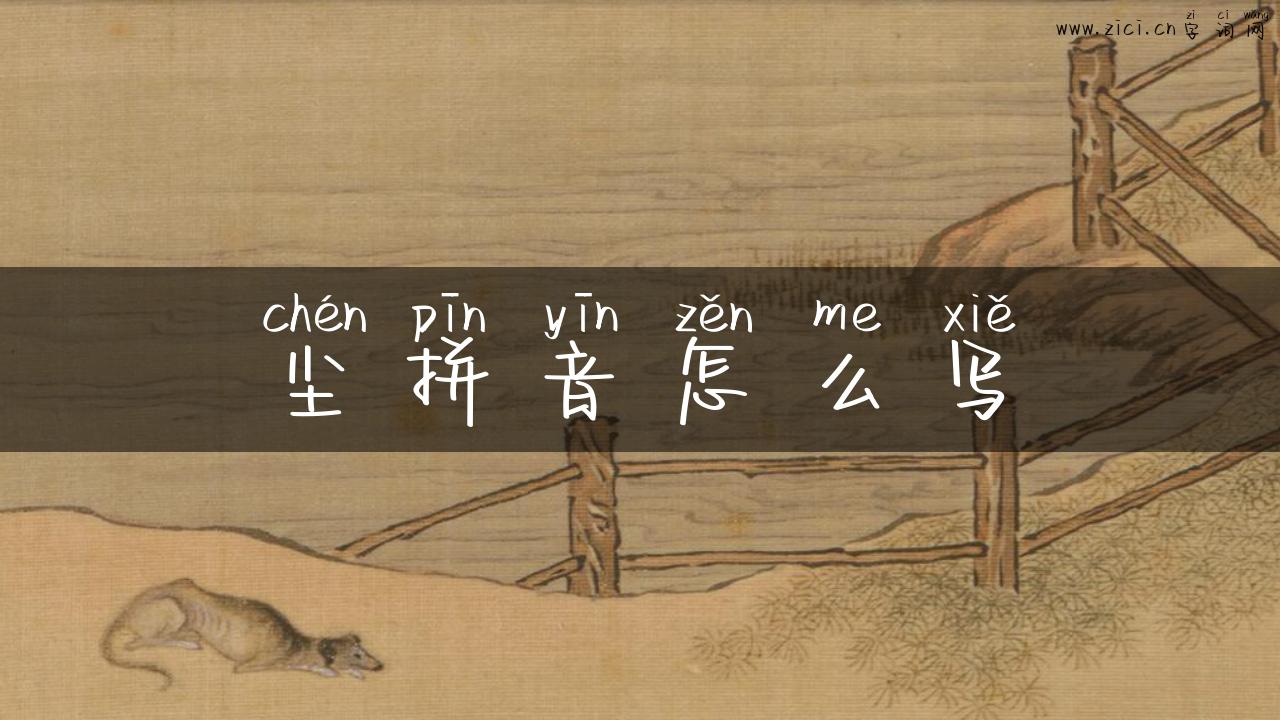 zi ci wang
www.zici.cn 字词网
chén pīn yīn zěn me xiě
尘拼音怎么写